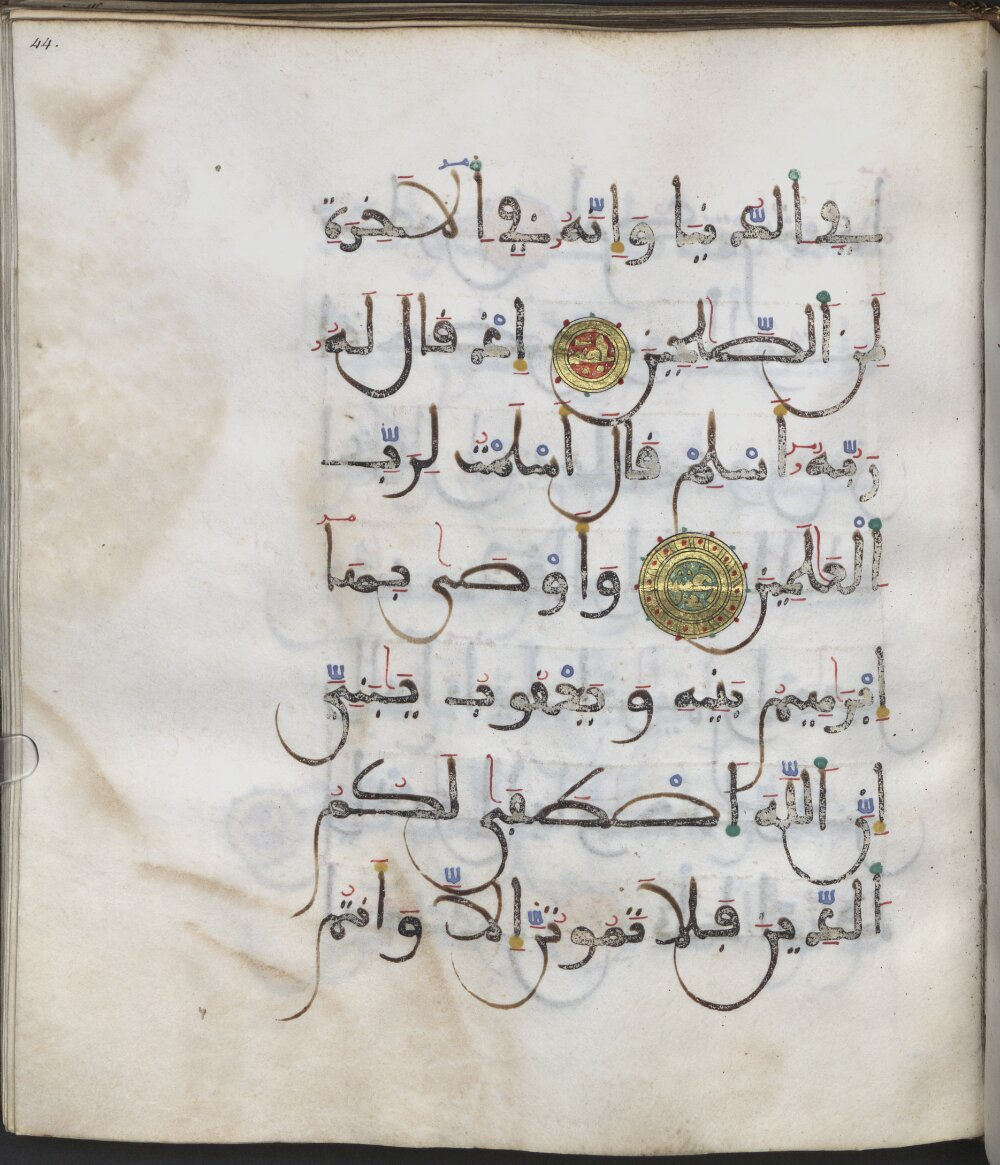 44.
فِي اِلدُّنْيَا وَإِنَّهُ فِي اِلَاخِرَةِ
لَمِنَ اَلصَّٰلِحِينَ إِذْ قَالَ لَهُ
رَبُّهُ أَسْلِمْ قَالَ أَسْلَمْتُ لِرَبِّ
اِلْعَٰلَمِينَ وَأَوْصَىٰ بِهَا
إِبْرَٰهِيمُ بَنِيهِ وَيَعْقُوبُ يَٰبَنِيَّ
إِنَّ اَللَّهَ اَصْطَفَىٰ لَكُمُ
اُلدِّينَ فَلَا تَمُوتُنَّ إِلَّا وَأَنتُم